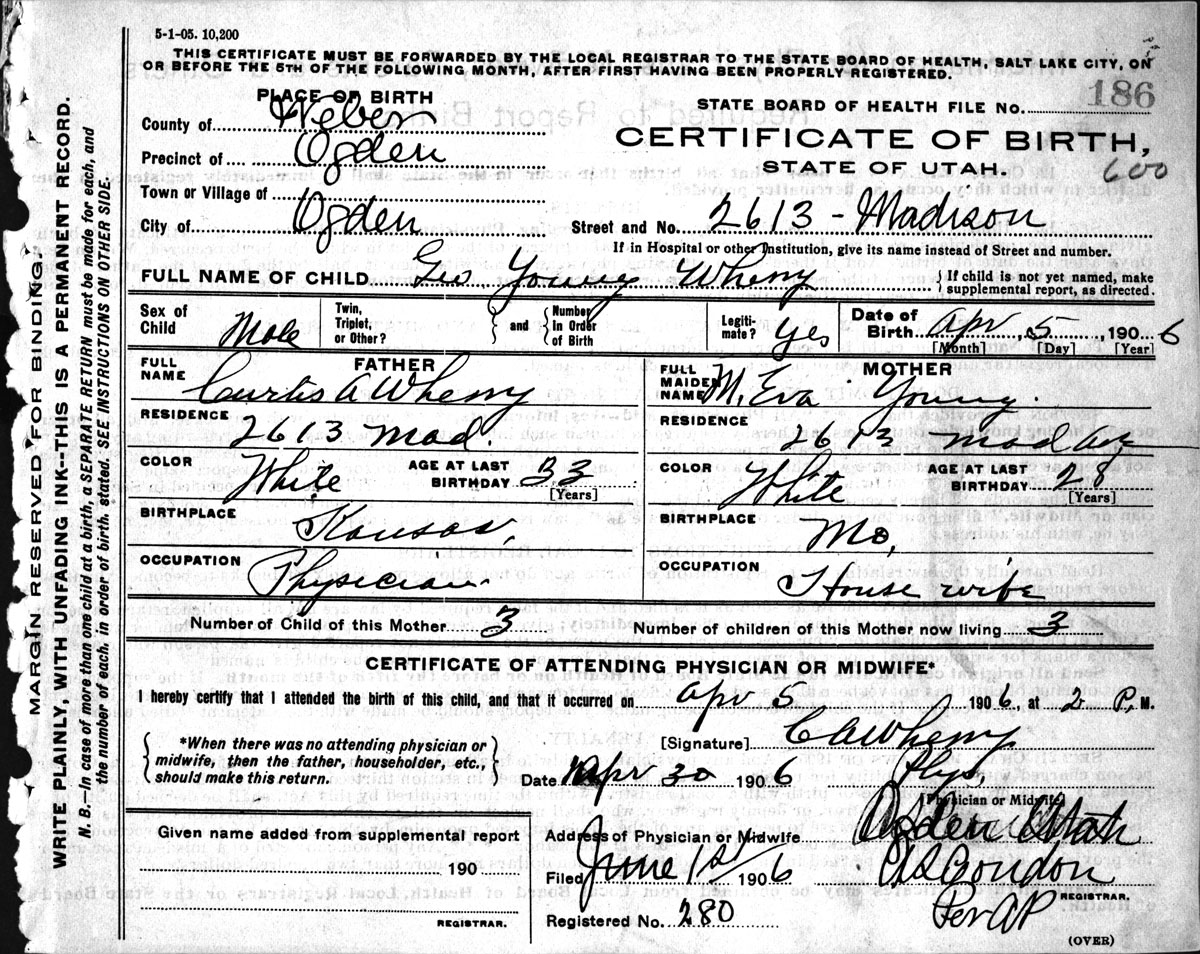 5-1-05. 10,200
THIS CERTIFICATE MUST BE FORWARDED BY THE LOCAL REGISTRAR TO THE STATE BOARD OF HEALTH, SALT LAKE CITY, ON
OR BEFORE THE 5TH OF THE FOLLOWING MONTH, AFTER FIRST HAVING BEEN PROPERLY REGISTERED.
PLACE OF BIRTH
STATE BOARD OF HEALTH FILE NO. 186
County of Weber
CERTIFICATE OF BIRTH,
Precinct of Ogden
STATE OF UTAH. 600
Town or Village of
City of Ogden Street and No. 2613 - Madison
If in Hospital or other Institution, give its name instead of Street and number.
FULL NAME OF CHILD Geo Young Wherry { If child is not yet named, make supplemental report, as directed.
Sex of Child Male Twin, Triplet, or Other? } and { Number In Order of Birth Legiti-mate? Yes Date of Birth Apr 5, 1906
[Month] [Day] [Year]
FATHER MOTHER
FULL NAME Curtis A Wherry FULL MAIDEN NAME M. Eva Young.
RESIDENCE 2613 Mad. RESIDENCE 2613 Mad Ave
COLOR White AGE AT LAST BIRTHDAY 33 [Years] COLOR White AGE AT LAST BIRTHDAY 28 [Years]
BIRTHPLACE Kansas, BIRTHPLACE Mo,
OCCUPATION Physician OCCUPATION House wife
Number of Child of this Mother 3 Number of children of this Mother now living 3
CERTIFICATE OF ATTENDING PHYSICIAN OR MIDWIFE*
I hereby certify that I attended the birth of this child, and that it occurred on Apr 5 1906, at 2 P. M.
{ *When there was no attending physician or midwife, then the father, householder, etc., should make this return. }
[Signature] C A Wherry
Date Apr 30 1906 Phys.
[Physician or Midwife]
Given name added from supplemental report
190
REGISTRAR.
Address of Physician or Midwife Ogden Utah
Filed June 1st 1906 Condon
REGISTRAR.
Registered No. 280 Per AP
(OVER)
MARGIN RESERVED FOR BINDING.
WRITE PLAINLY, WITH UNFADING INK--THIS IS A PERMANENT RECORD.
N. B.—In case of more than one child at a birth, a SEPARATE RETURN must be made for each, and
the number of each, in order of birth, stated. SEE INSTRUCTIONS ON OTHER SIDE.